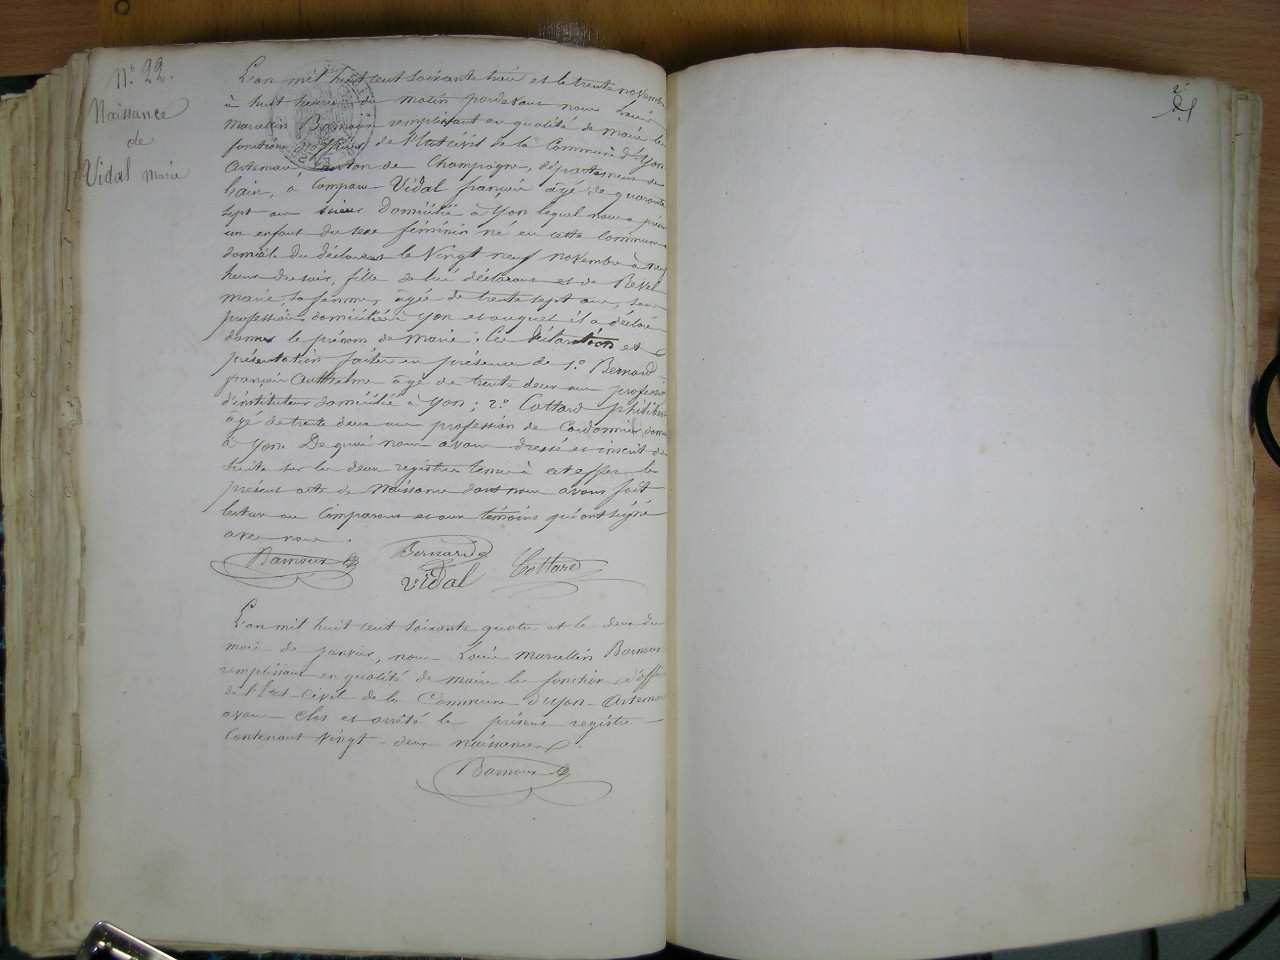 N° 22.
Naissance
de
Vidal Marie
L'an mil huit cent soixante trois et le trente novembre
à huit heures du matin pardevant nous Louis
Marcellin remplissant en qualité de maire les
fonctions d'officier de l'Etat civil de la Commune d'Yon
Artemare canton de Champagne, département de
l'ain, à comparu Vidal françois âgé de quarante
sept ans domicilié à Yon lequel nous a présenté
un enfant du sexe féminin né en cette commune
domicile du déclarant le vingt neuf novembre à
heures du soir, fille de lui déclarant et de Revel
marie, sa femme, âgée de trente sept ans, sans
profession domiciliée à Yon et auquel il a déclaré
donner le prénom de Marie. Ces déclaration et
présentation faites en présence de 1° Bernard
françois Anthelme âgé de trente deux ans profession
d'instituteur domicilié à Yon; 2° Cottard philibert
âgé de trente deux ans profession de Cordonnier, dom
à Yon. De quoi nous avons dressé et inscrit de
suite sur les deux registres tenus à cet effet le
présent acte de Naissance dont nous avons fait
lecture au Comparant et aux témoins qui ont signé
avec nous.
Bernard
Vidal Cottard
L'an mil huit cent soixante quatre et le deux du
mois de janvier, nous Louis Marcellin
remplissant en qualité de maire les fonctions d'off
de l'Etat-civil de la Commune d'Yon-Artemare
avons clos et arrêté le présent registre
Contenant vingt-deux naissances.